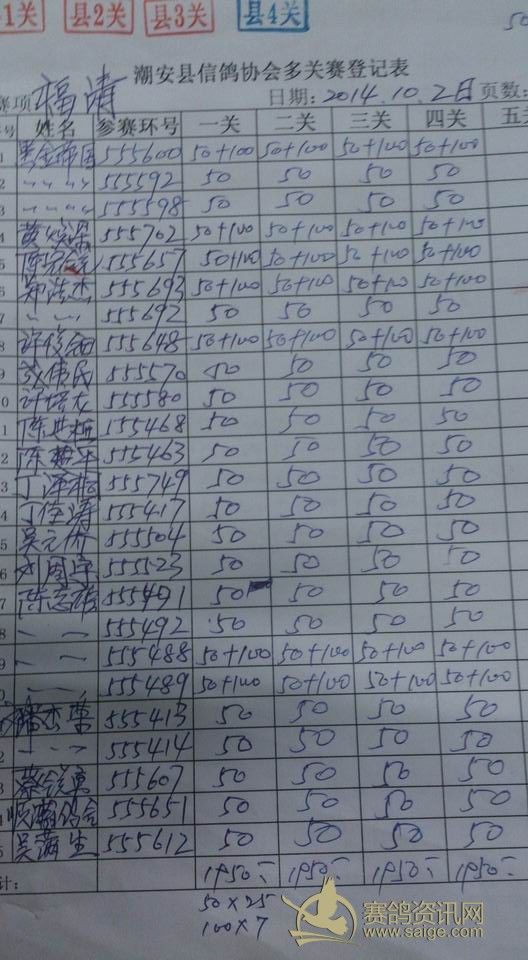 1关 县2关 县3关 县4关
潮安县信鸽协会多关赛登记表
赛项 福清 日期: 2014.10.2日 页数:
号 姓名 参赛环号 一关 二关 三关 四关 五关
1 555600 50+100 50+100 50+100 50+100
2 〃 〃 〃 〃 555592 50 50 50 50
3 〃 〃 〃 〃 555598 50 50 50 50
4 555702 50+100 50+100 50+100 50+100
5 555657 50+100 50+100 50+100 50+100
6 郑浩杰 555693 50+100 50+100 50+100 50+100
7 〃 〃 555692 50 50 50 50
8 555648 50+100 50+100 50+100 50+100
9 伟民 555570 50 50 50 50
0 555580 50 50 50 50
1 555468 50 50 50 50
2 555463 50 50 50 50
3 555749 50 50 50 50
4 555417 50 50 50 50
5 555504 50 50 50 50
6 555523 50 50 50 50
7 555491 50 50 50 50
8 〃 〃 555492 50 50 50 50
9 〃 〃 555488 50+100 50+100 50+100 50+100
〃 〃 555489 50+100 50+100 50+100 50+100
555413 50 50 50 50
2 〃 〃 555414 50 50 50 50
3 555607 50 50 50 50
555651 50 50 50 50
5 555612 50 50 50 50
计: 1950 1950 1950 1950
50×25
100×7
赛鸽资讯网
www.saige.com